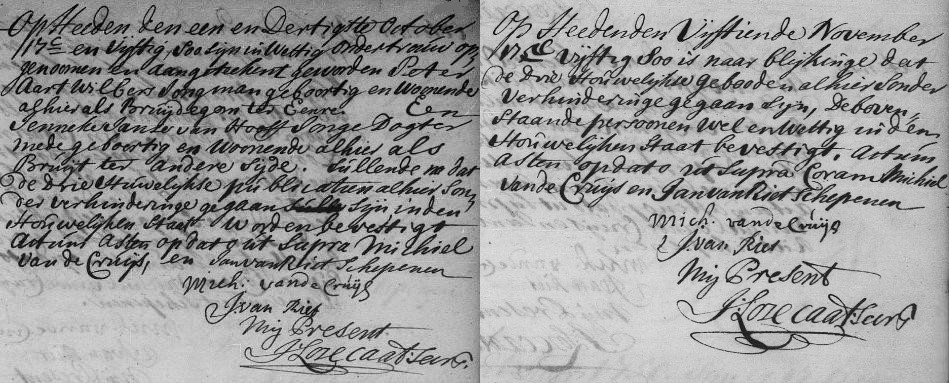 Op Heeden den een en Dertigtte October
17C en Vijftig Soo Sijn in Wettig Ondertrouw op
genoomen en aangeteekent geworden Peter
Aart Wilbers Jongman geboortig en Woonende
alhier als Bruijdegom ter Eenre. En
Jenneke Janse van Hooff Jonge Dogter
mede geboortig en Woonende alhier als
Bruijt ter andere Sijde. Sullende na dat
de drie Houwelijkse publicatien alhier Son
der verhinderinge gegaan Sijn in den
Houwelijken Staat Worden bevestigt
Actum Asten op dato ut Supra Michiel
van de Cruijs, en Jan van Riet Schepenen
Mich: vande Cruijs
J van Riet
Mij Present
J: Losecaat: Secrs.
Op Heeden den Vijftiende November
17C Vijftig Soo is naar blijkinge dat
de drie Houwelijkse gebooden alhier Sonder
Verhinderinge gegaan Sijn, de boven
Staande persoonen Wel en Wettig in den
Houwelijken Staat bevestigt. Actum
Asten op dato ut Supra Coram Michiel
vande Cruijs en Jan van Riet Schepenen
Mich: vande Cruijs
J van Riet
Mij Present
J: Losecaat: Secrs